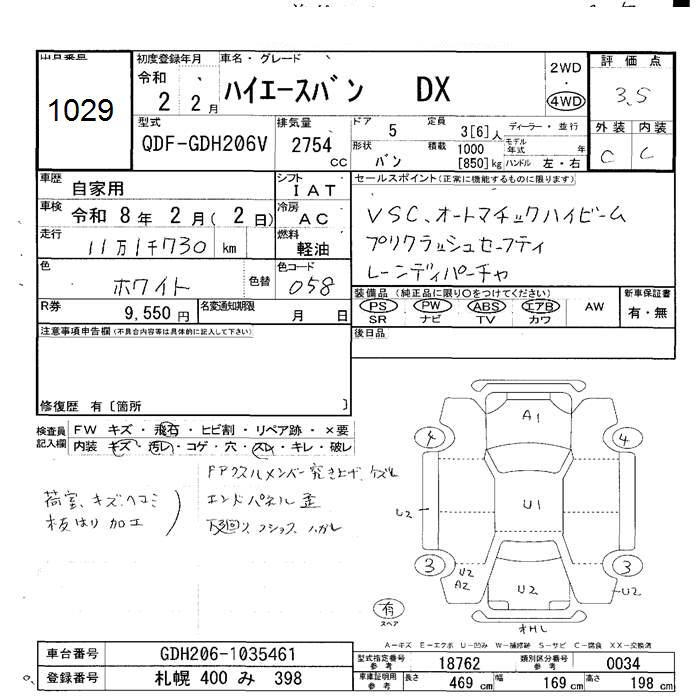 出品番号
1029
初度登録年月
令和
2 2月
車名・グレード
ハイエースバン DX
2WD
・
4WD
評価点
3.5
外装 内装
C C
型式
QDF-GDH206V
排気量
2754 cc
ドア 5
定員 3[6]人
ディーラー・並行
形状 バン
積載 1000 [850]kg
モデル年式 年
ハンドル 左・右
車歴 自家用
シフト IAT
車検 令和 8年 2月( 2日)
冷房 AC
走行 11万1千730 km
燃料 軽油
色 ホワイト
色替
色コード 058
R券 9,550円
名変通知期限 月 日
セールスポイント(正常に機能するものに限ります)
VSC、オートマチックハイビーム
プリクラッシュセーフティ
レーンディパーチャ
装備品(純正品に限り○をつけてください)
PS PW ABS エアB AW
SR ナビ TV カワ
新車保証書
有・無
注意事項申告欄(不具合内容等は具体的に記入して下さい)
後日品
修復歴 有〔箇所 〕
検査員記入欄
FW キズ・飛石・ヒビ割・リペア跡・×要
内装 キズ・汚レ・コゲ・穴・スレ・キレ・破レ
荷室、キズ・ヘコミ
板はり加工
Fアクスルメンバー突き上げ、ケズレ
エンドパネル歪
下回り
A1
4 4
U2
U1
3 3
U2
A2
U2
U2
有
スペア
A-キズ E-エクボ U-凹み W-補修跡 S-サビ C-腐食 XX-交換済
車台番号 GDH206-1035461
登録番号 札幌 400 み 398
型式指定番号 参考 18762
類別区分番号 参考 0034
車庫証明用 参考 長さ 469 cm 幅 169 cm 高さ 198 cm